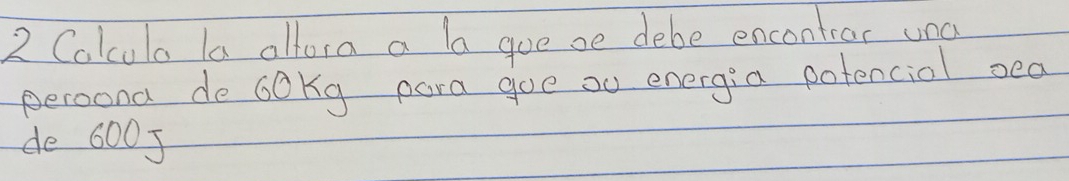 2 Calcula la altura a la que se debe encontrar una
persona de 60Kg para que su energia potencial sea
de 600J